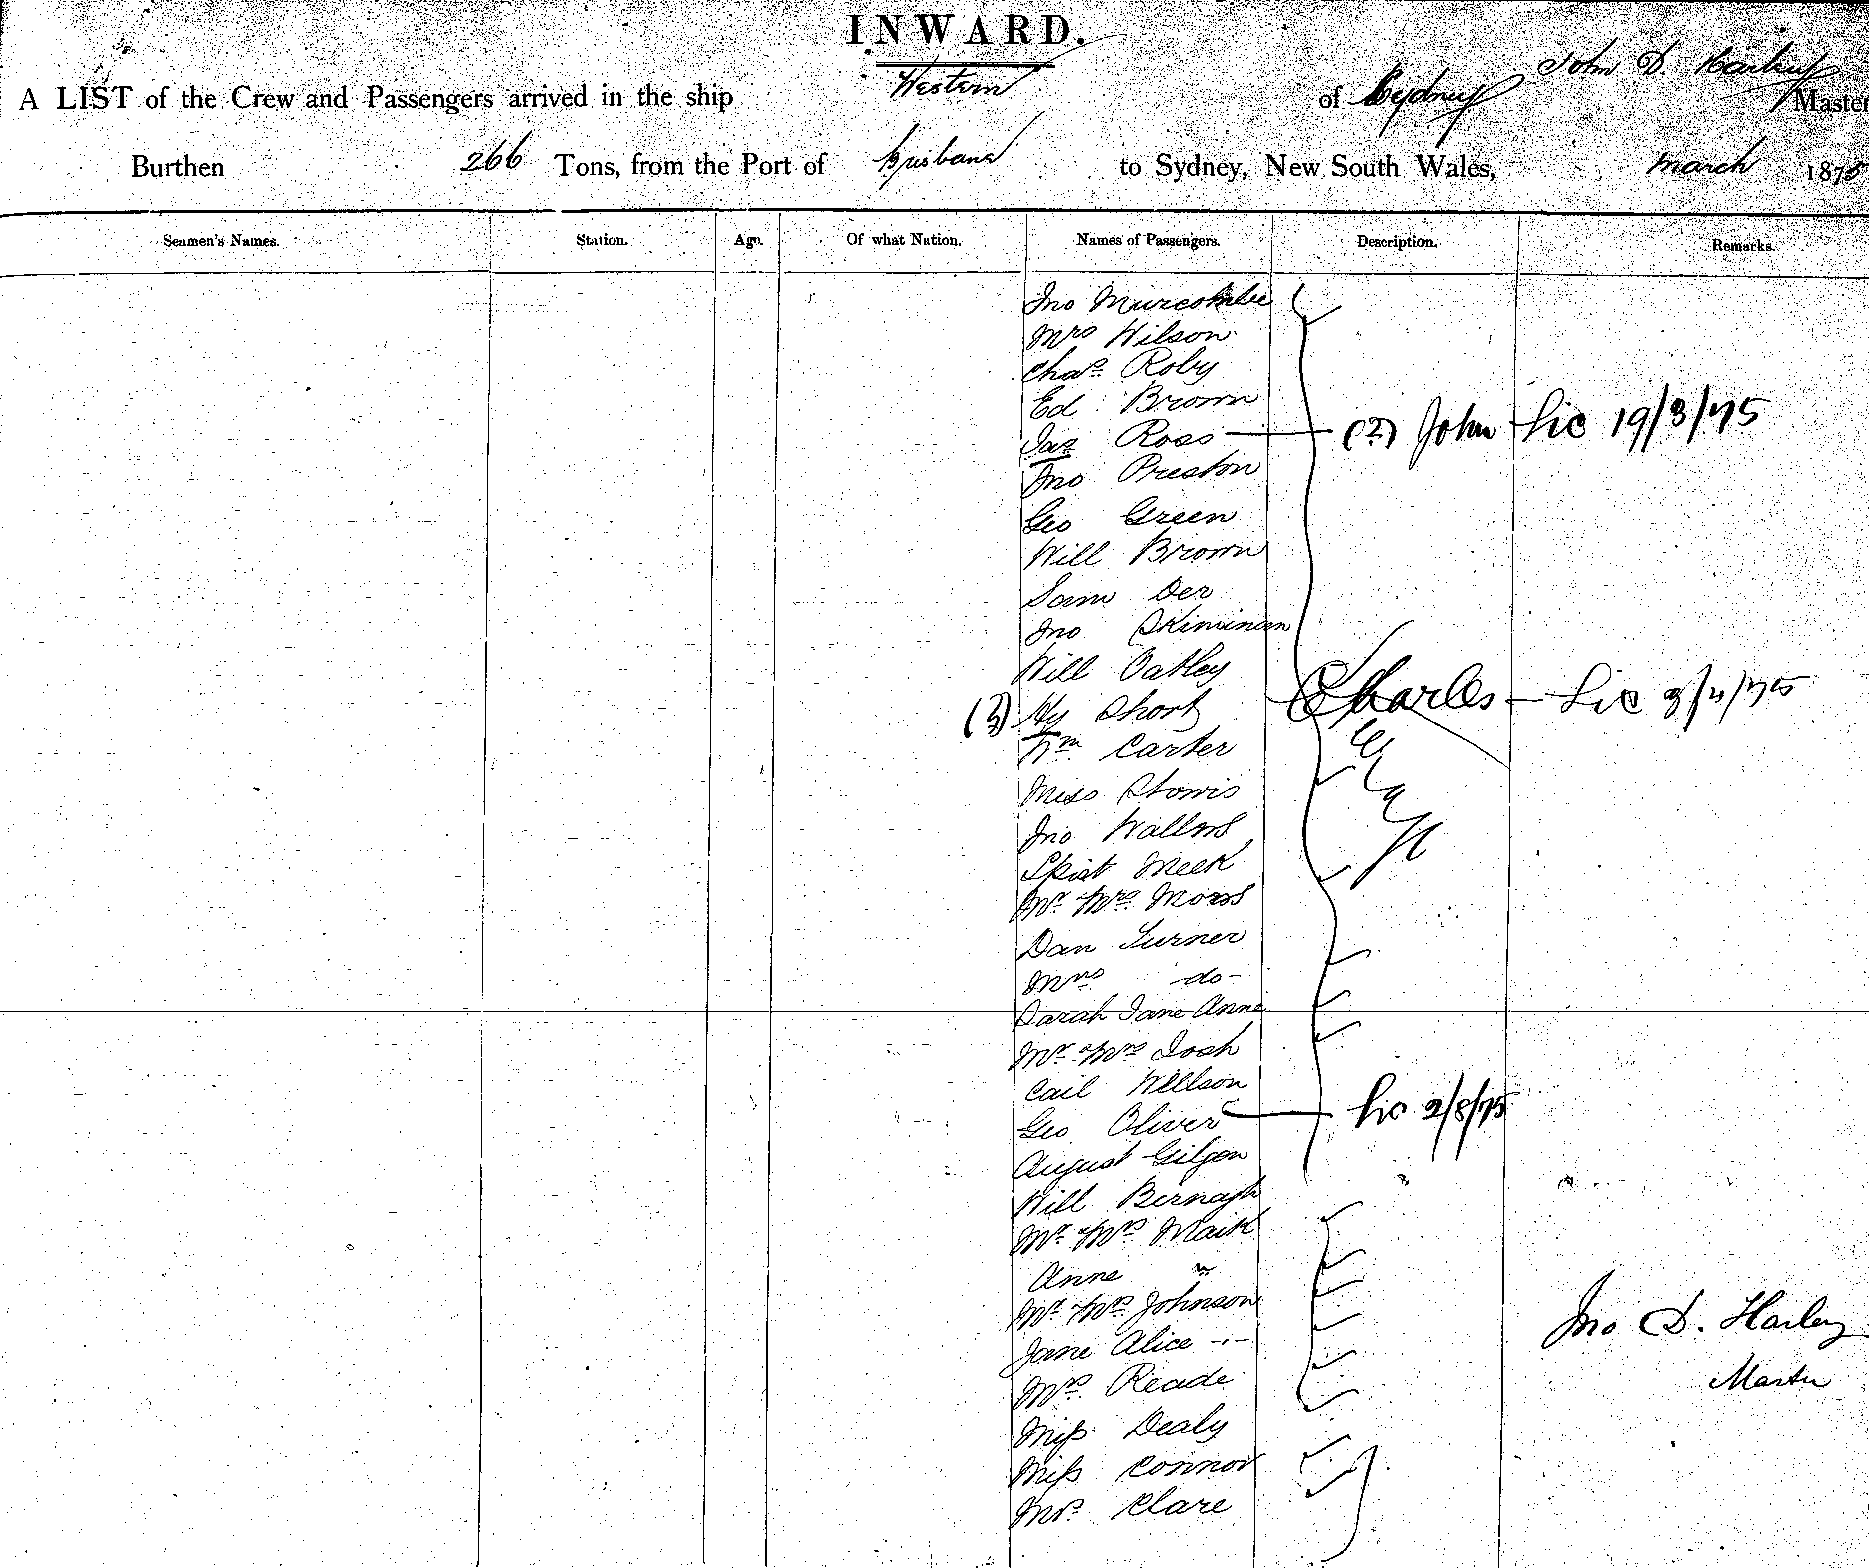 INWARD.
A LIST of the Crew and Passengers arrived in the ship Western of Sydney John D. Harley Master
Burthen 266 Tons, from the Port of Brisbane to Sydney, New South Wales, March 1875
Seamen's Names. Station. Age. Of what Nation. Names of Passengers. Description. Remarks.
Jno
Mrs Wilson
Chas Roby
Ed Brown
Jas Ross (?) John Lic 19/3/75
Jno Preston
Geo Green
Will Brown
Sam Der
Jno
Will Oatley
(3) Hy Short Charles Lic
Wm Carter
Miss
Jno
Meek
Mr Mrs
Dan Turner
Mrs do
Sarah Jane Anne
Mr Mrs Josh
Cail Willson
Geo Oliver Lic 2/8/75
August
Will
Mr Mrs
Anne "
Mr Mrs Johnson
Jane Alice
Mrs Reade
Miss Dealy
Miss Connor
Mrs Clare
Steerage
Jno D. Harley
Master